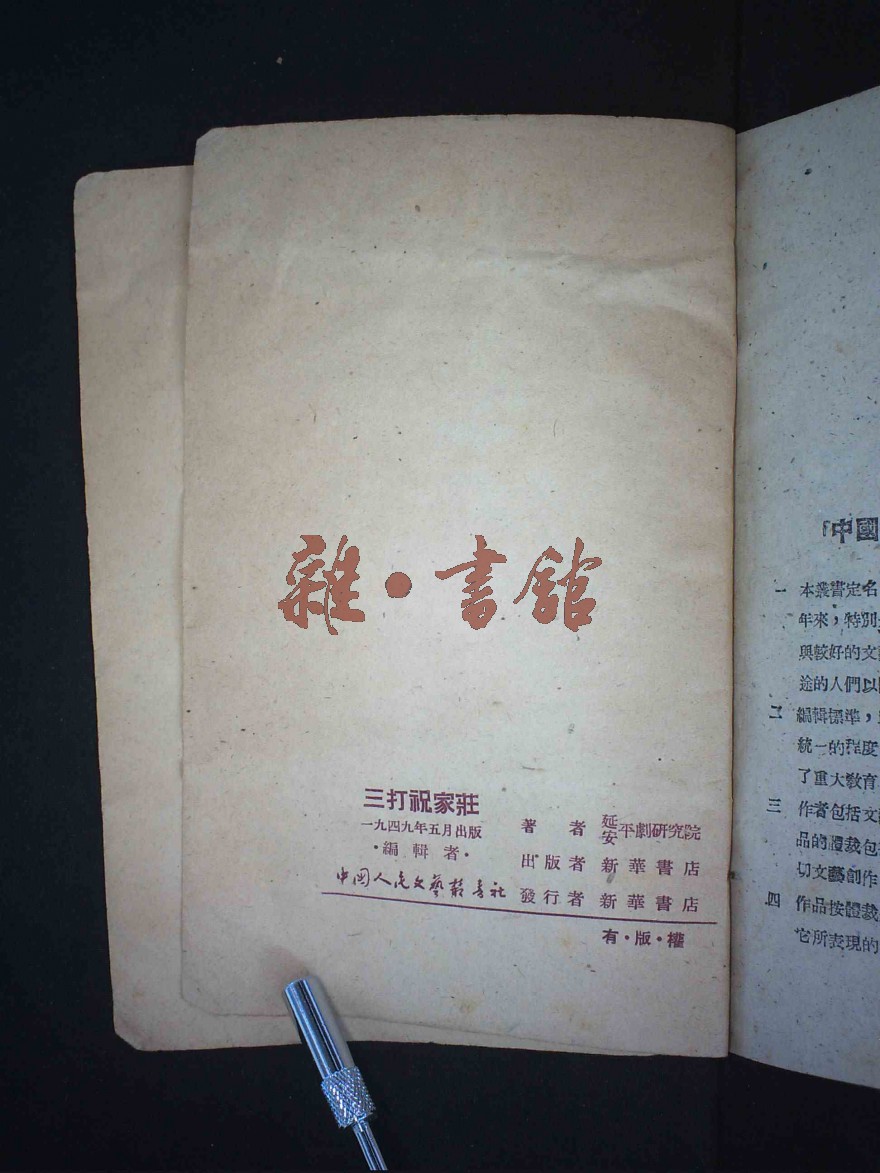 雜·書館
三打祝家莊
一九四九年五月出版
·編輯者·
中國人民文藝叢書社
著者 延安平劇研究院
出版者 新華書店
發行者 新華書店
有·版·權
「中國
一 本叢書定名
年來，特別
與較好的文
途的人們以
二 編輯標準，
統一的程度
了重大教育
三 作者包括文
品的體裁包
切文藝創作
四 作品按體裁
它所表現的